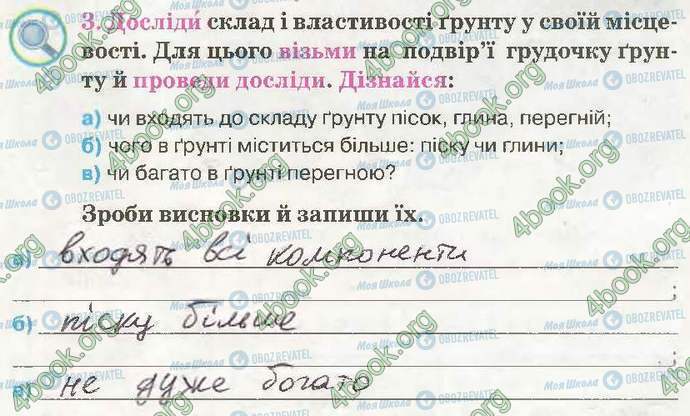 3. Досліди склад і властивості ґрунту у своїй місце-
вості. Для цього візьми на подвір'ї грудочку ґрун-
ту й проведи досліди. Дізнайся:
а) чи входять до складу ґрунту пісок, глина, перегній;
б) чого в ґрунті міститься більше: піску чи глини;
в) чи багато в ґрунті перегною?
Зроби висновки й запиши їх.
а) входять всі компоненти
;
б) піску більше
;
в) не дуже богато